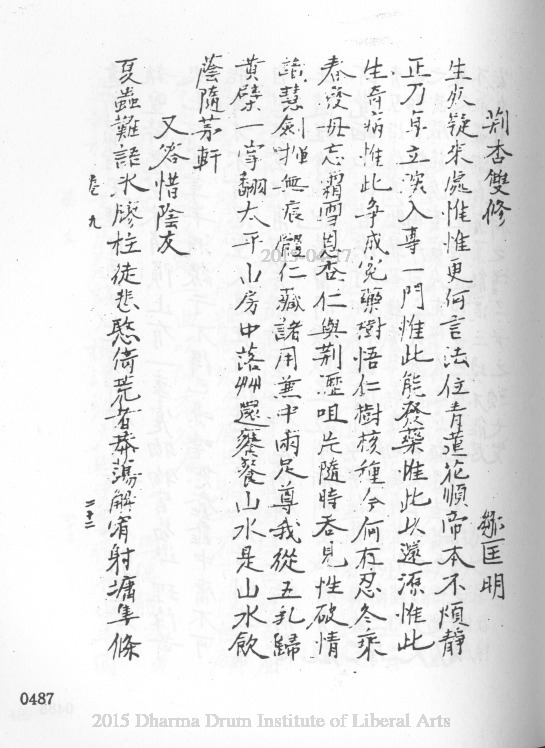 荆杏雙修　　　　　　　　　　　　　　　　　　　匡明
生疑來處惟惟更何言法住青蓮花順帝本不煩靜
正乃卓立深入專一門惟此能發藥惟此以還源惟此
生奇病惟此爭成完藥樹悟仁樹核種今何在忍冬乘
春發毋忘霜雪恩杏仁與荆瀝咀片隨時吞見性破情
語慧劍揮無痕體仁藏諸用兼中兩足尊我從五乳歸
黃檗一掌翻太平山房中落草還饔餐山水是山水飲
蔭隨茅軒
又答惜陰友
夏蟲難語氷膠柱徒悲愍倚荒者莽蕩解宵射墉隼條
卷九　二十二
0487
2015-04-17
2015 Dharma Drum Institute of Liberal Arts